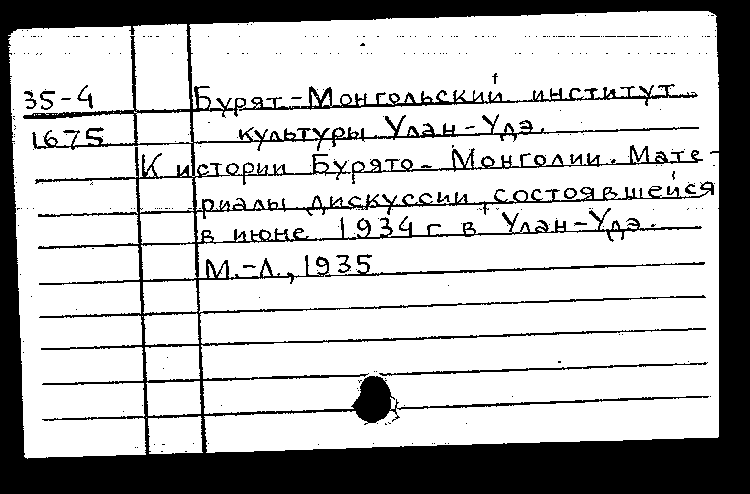 35-4
1675
Бурят-Монгольский институт
культуры. Улан-Удэ.
К истории Бурято-Монголии. Мате-
риалы дискуссии, состоявшейся
в июне 1934 г в Улан-Удэ.
М.-Л., 1935